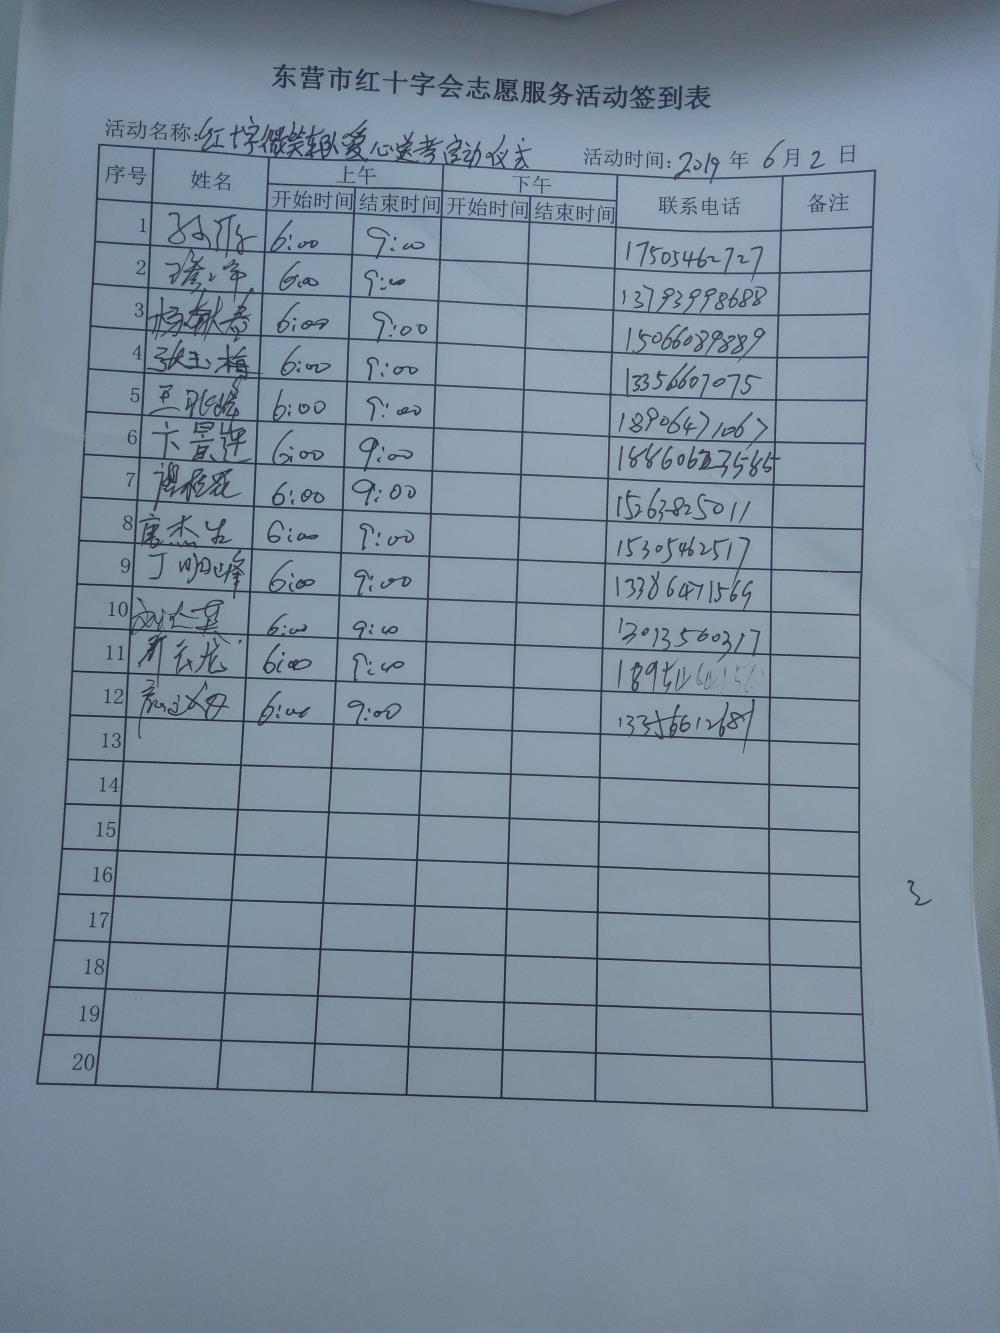 东营市红十字会志愿服务活动签到表
活动名称:红十字微笑车队爱心送考启动仪式 活动时间:2019年6月2日
序号 姓名 上午 下午 联系电话 备注
开始时间 结束时间 开始时间 结束时间
1 6:00 9:00 17505462727
2 6:00 9:00 13793998688
3 杨献春 6:00 9:00 15066089889
4 张玉梅 6:00 9:00 13356607075
5 6:00 9:00 18906471067
6 卞景萍 6:00 9:00
7 6:00 9:00 15263825011
8 唐杰生 6:00 9:00 15305462517
9 丁明峰 6:00 9:00 13386471569
10 6:00 9:00 13013560317
11 6:00 9:00
12 6:00 9:00 13356612681
13
14
15
16
17
18
19
20